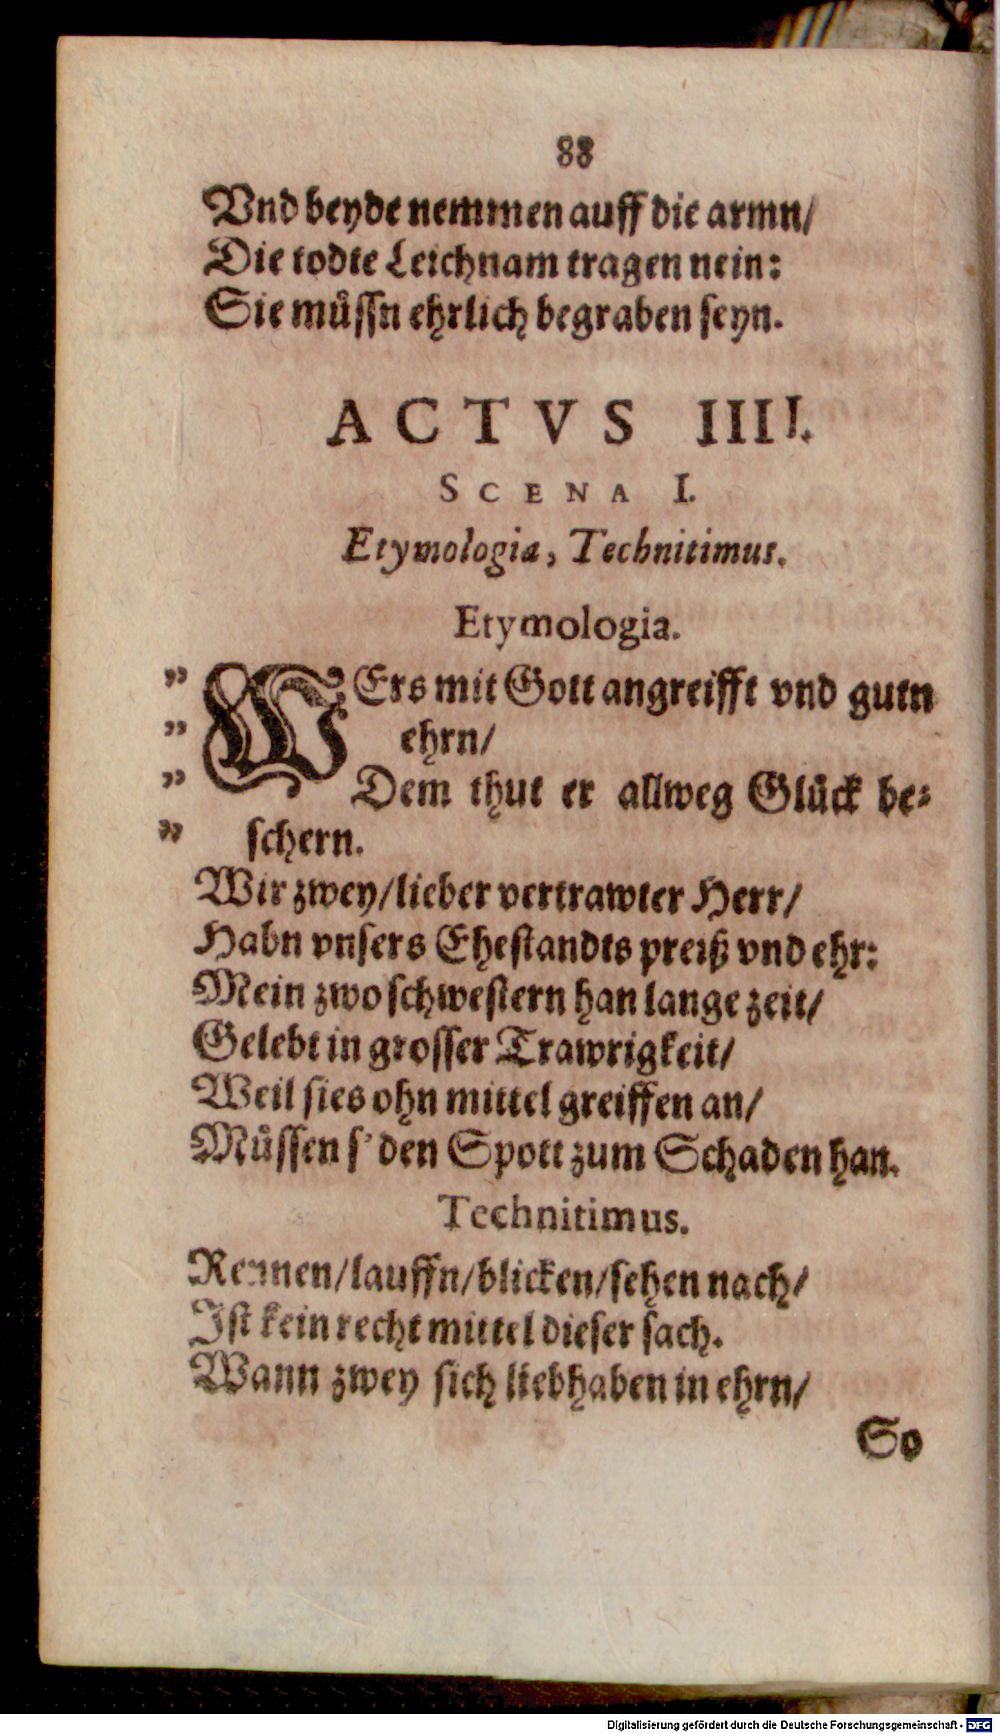 88
Vnd beyde nemmen auff die armn/
Die todte Leichnam tragen nein:
Sie müssn ehrlich begraben seyn.
ACTVS IIII.
SCENA I.
Etymologia, Technitimus.
Etymologia.
” WErs mit Gott angreifft vnd gutn
” ehrn/
” Dem thut er allweg Glück be-
” schern.
Wir zwey/lieber vertrawter Herr/
Habn vnsers Ehestandts preiß vnd ehr:
Mein zwo schwestern han lange zeit/
Gelebt in grosser Trawrigkeit/
Weil sies ohn mittel greiffen an/
Müssen s' den Spott zum Schaden han.
Technitimus.
Rennen/lauffn/blicken/sehen nach/
Ist kein recht mittel dieser sach.
Wann zwey sich liebhaben in ehrn/
So
Digitalisierung gefördert durch die Deutsche Forschungsgemeinschaft - DFG